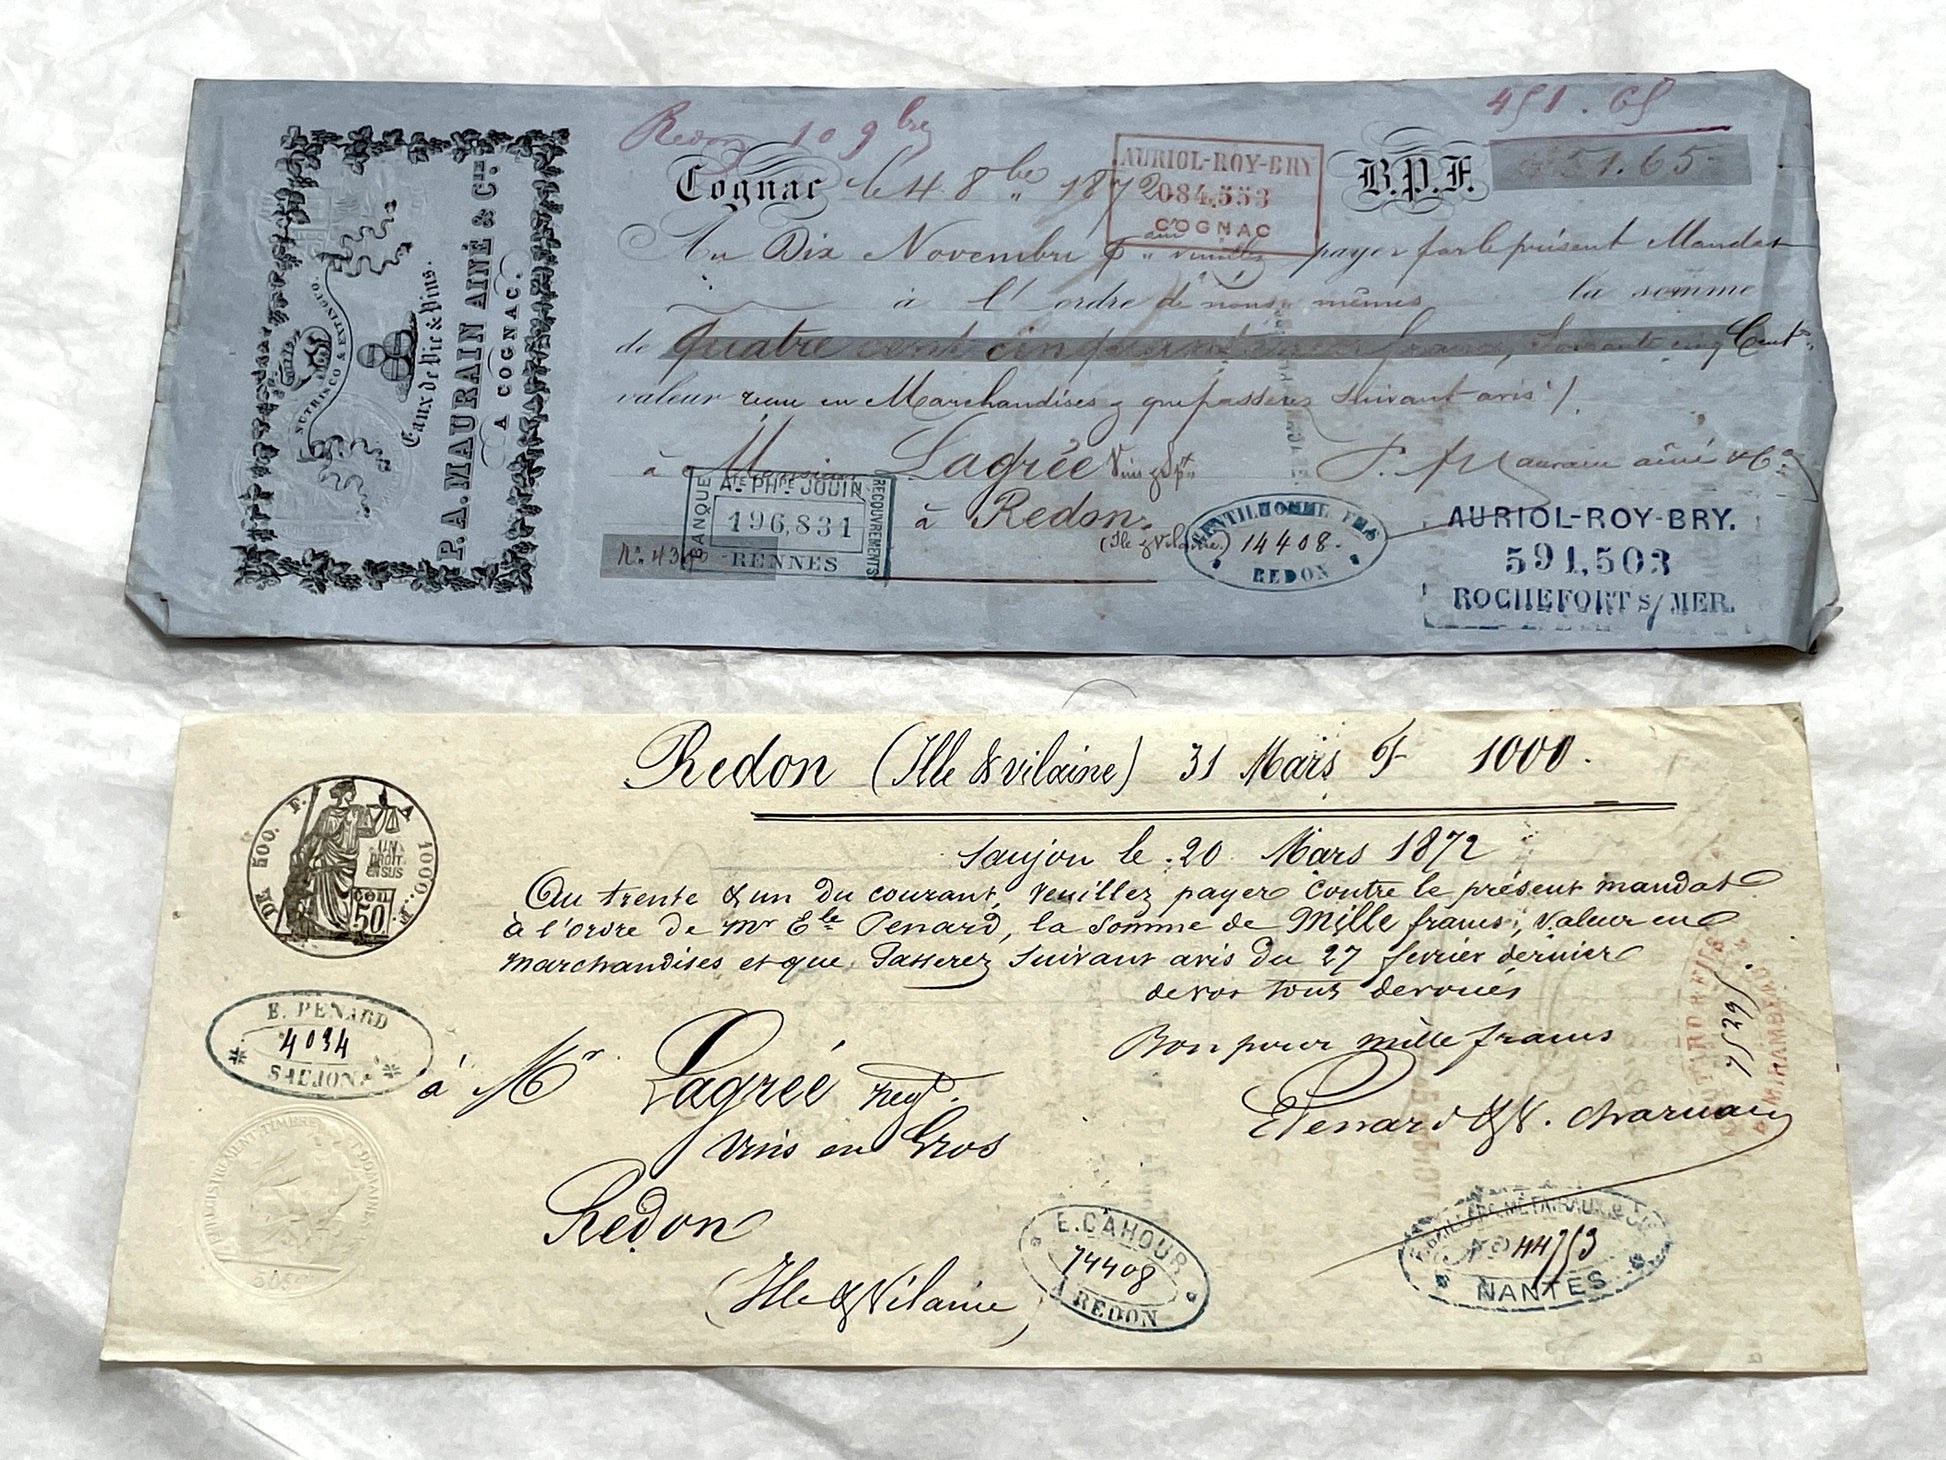 NUTRISCO & EXTINGUO
Eaux de Vie & Vins.
P. A. MAURAIN AINÉ & Cie.
A COGNAC.
Redon 10 9bre
451.65
Cognac le 4 8bre 1872
B.P.F. 451.65
AURIOL-ROY-BRY
084,553
COGNAC
Au Dix Novembre payer par le présent Mandat
à l'ordre de nous mêmes la somme
de Quatre cent cinquante un francs, Soixante cinq Cent.
valeur reçue en Marchandises & que passerez suivant avis
à Monsieur Lagrée Vins & Spt
P. A. Maurain aîné & Cie
à Redon.
(Ile & Vilaine)
No. 43
BANQUE
Ate PHPe JOUIN
196,831
RENNES
RECOUVREMENTS
GENTILHOMME FILS
14408.
REDON
AURIOL-ROY-BRY.
591,503
ROCHEFORT S/MER.
Redon (Ille & vilaine) 31 Mars F 1000.
Saujon le 20 Mars 1872
Au trente & un du courant, Veuillez payer Contre le présent mandat
à l'ordre de Mr Ele Penard, la Somme de Mille francs, Valeur en
Marchandises et que Passerez Suivant avis du 27 fevrier dernier
de vos tous dévoués
Bon pour mille francs
Penard & V. Charuau
à Mr Lagrée negt.
Vins en Gros
Redon
(Ille & Vilaine)
DE 500. F. A 1000. F.
UN
DROIT
EN SUS
50 cen
E. PENARD
4034
SAUJON
ENREGISTREMENT TIMBRE ET DOMAINES
E. CAHOUR
74408
A REDON
44753
NANTES
75295